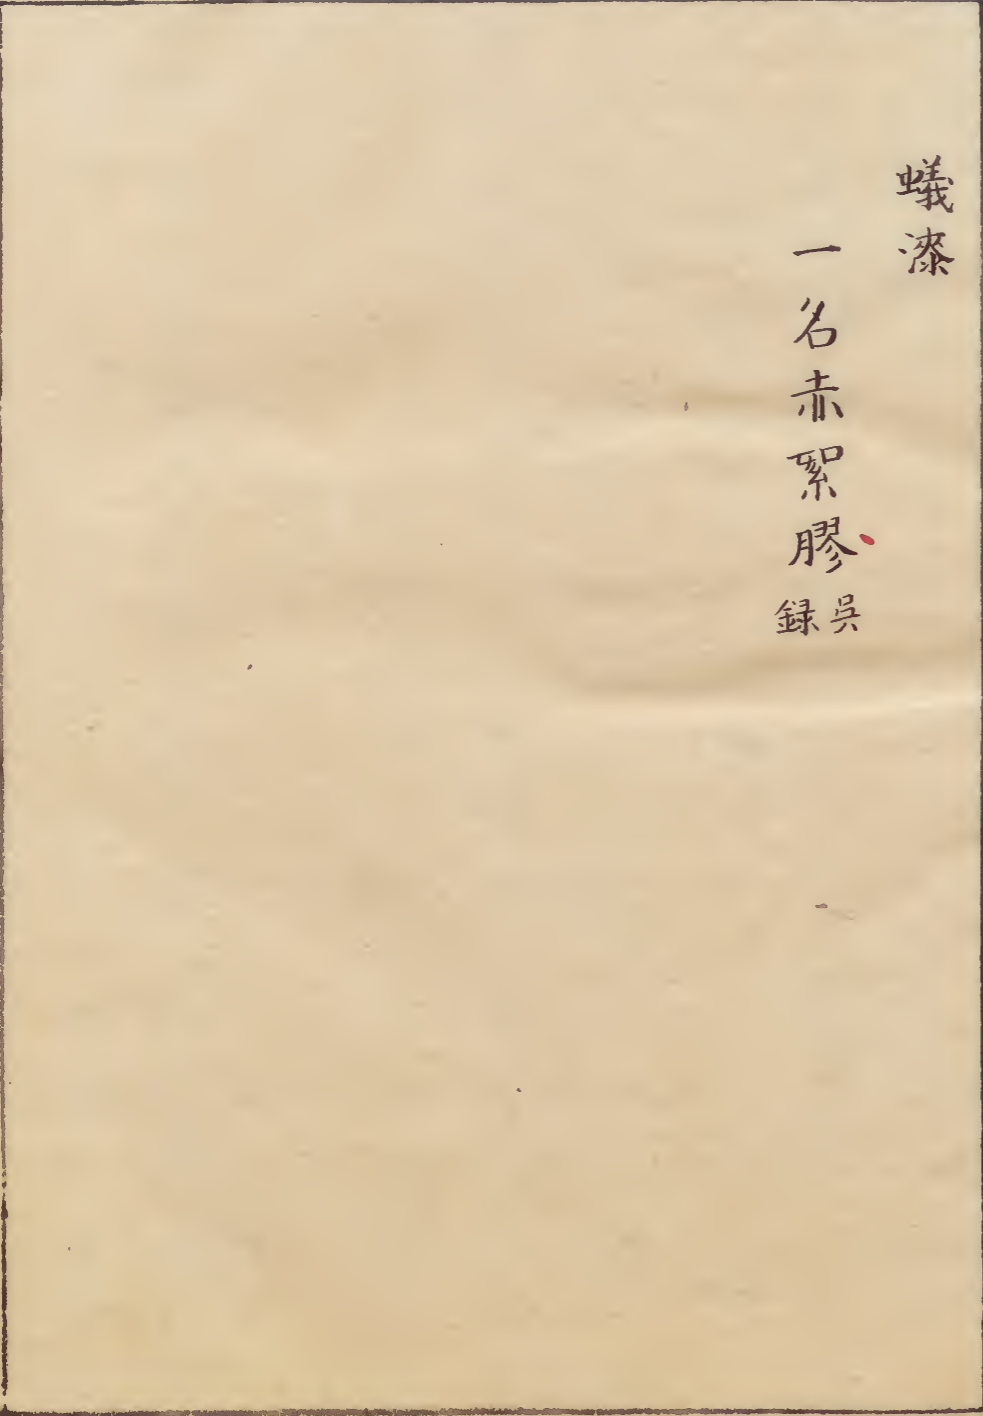 蟻漆
一名赤絮膠 吳録